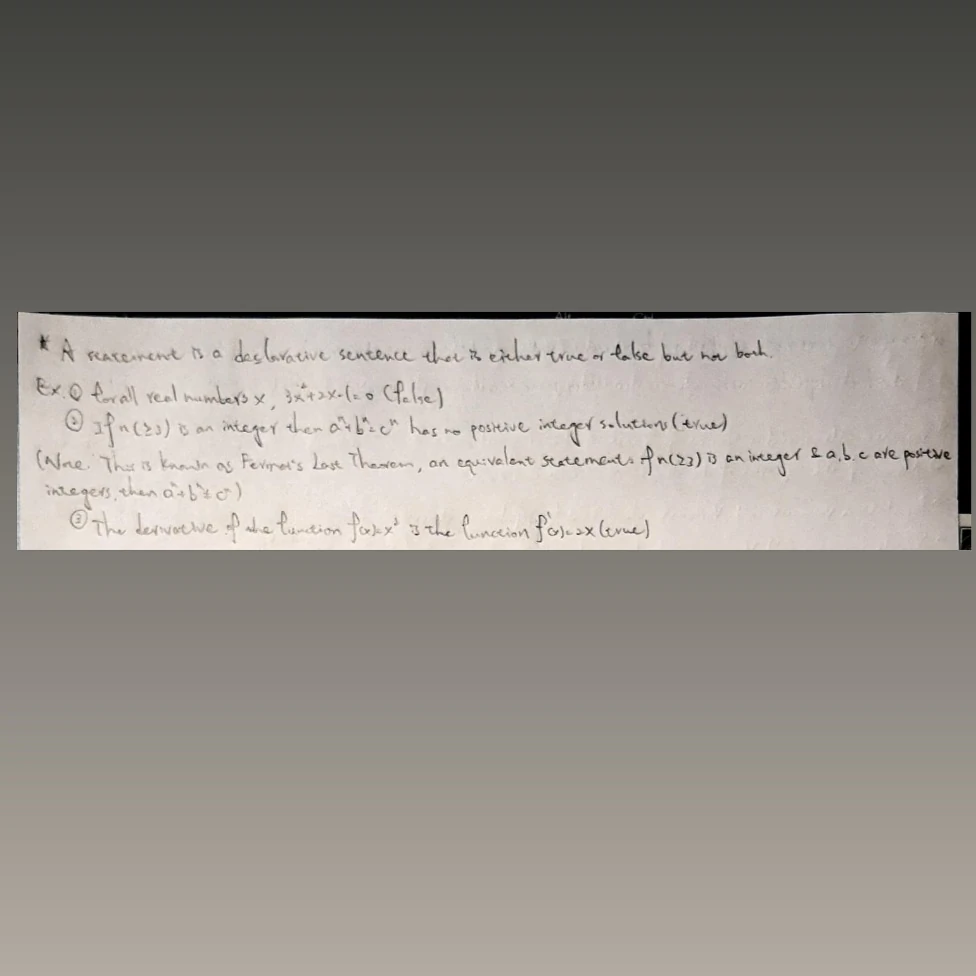 * A statement is a declarative sentence that is either true or false but not both.
Ex. ① for all real numbers x, 3x²+2x-1=0 (false)
② If n(≥3) is an integer then aⁿ+bⁿ=cⁿ has no positive integer solutions (true)
(Note: This is known as Fermat's Last Theorem, an equivalent statement: if n(≥3) is an integer & a,b,c are positive
integers, then aⁿ+bⁿ≠cⁿ)
③ The derivative of the function f(x)=x² is the function f'(x)=2x (true)